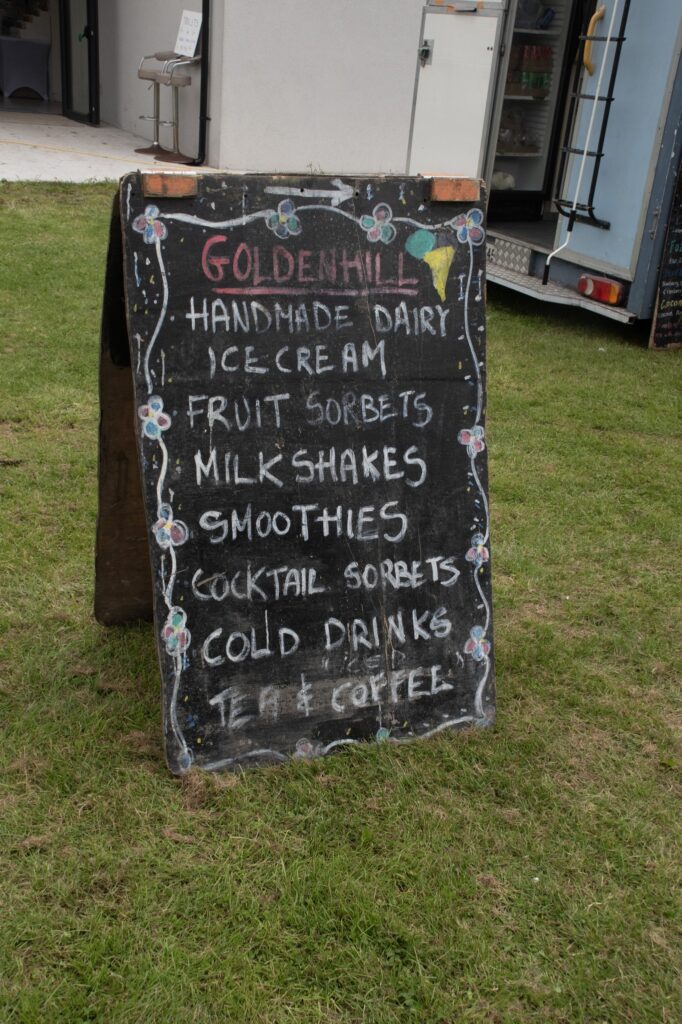 GOLDENHILL
HANDMADE DAIRY
ICE CREAM
FRUIT SORBETS
MILKSHAKES
SMOOTHIES
COCKTAIL SORBETS
COLD DRINKS
ICED
TEA & COFFEE
TOILETS